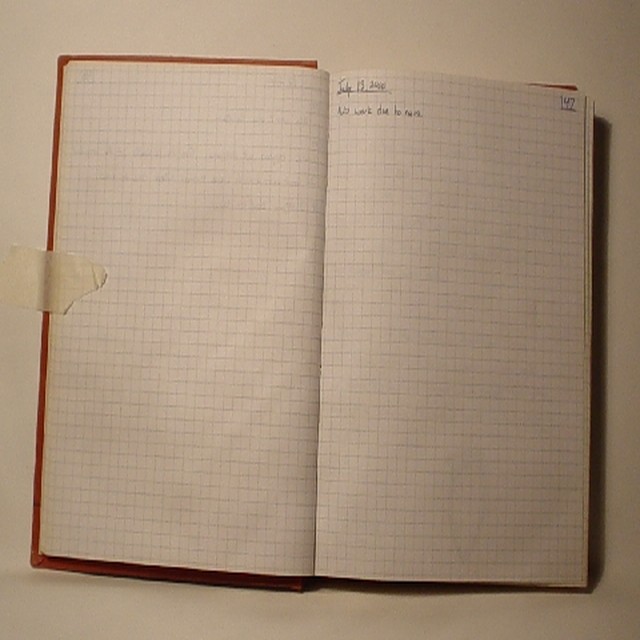 July 13, 2000
147
No work due to rain.